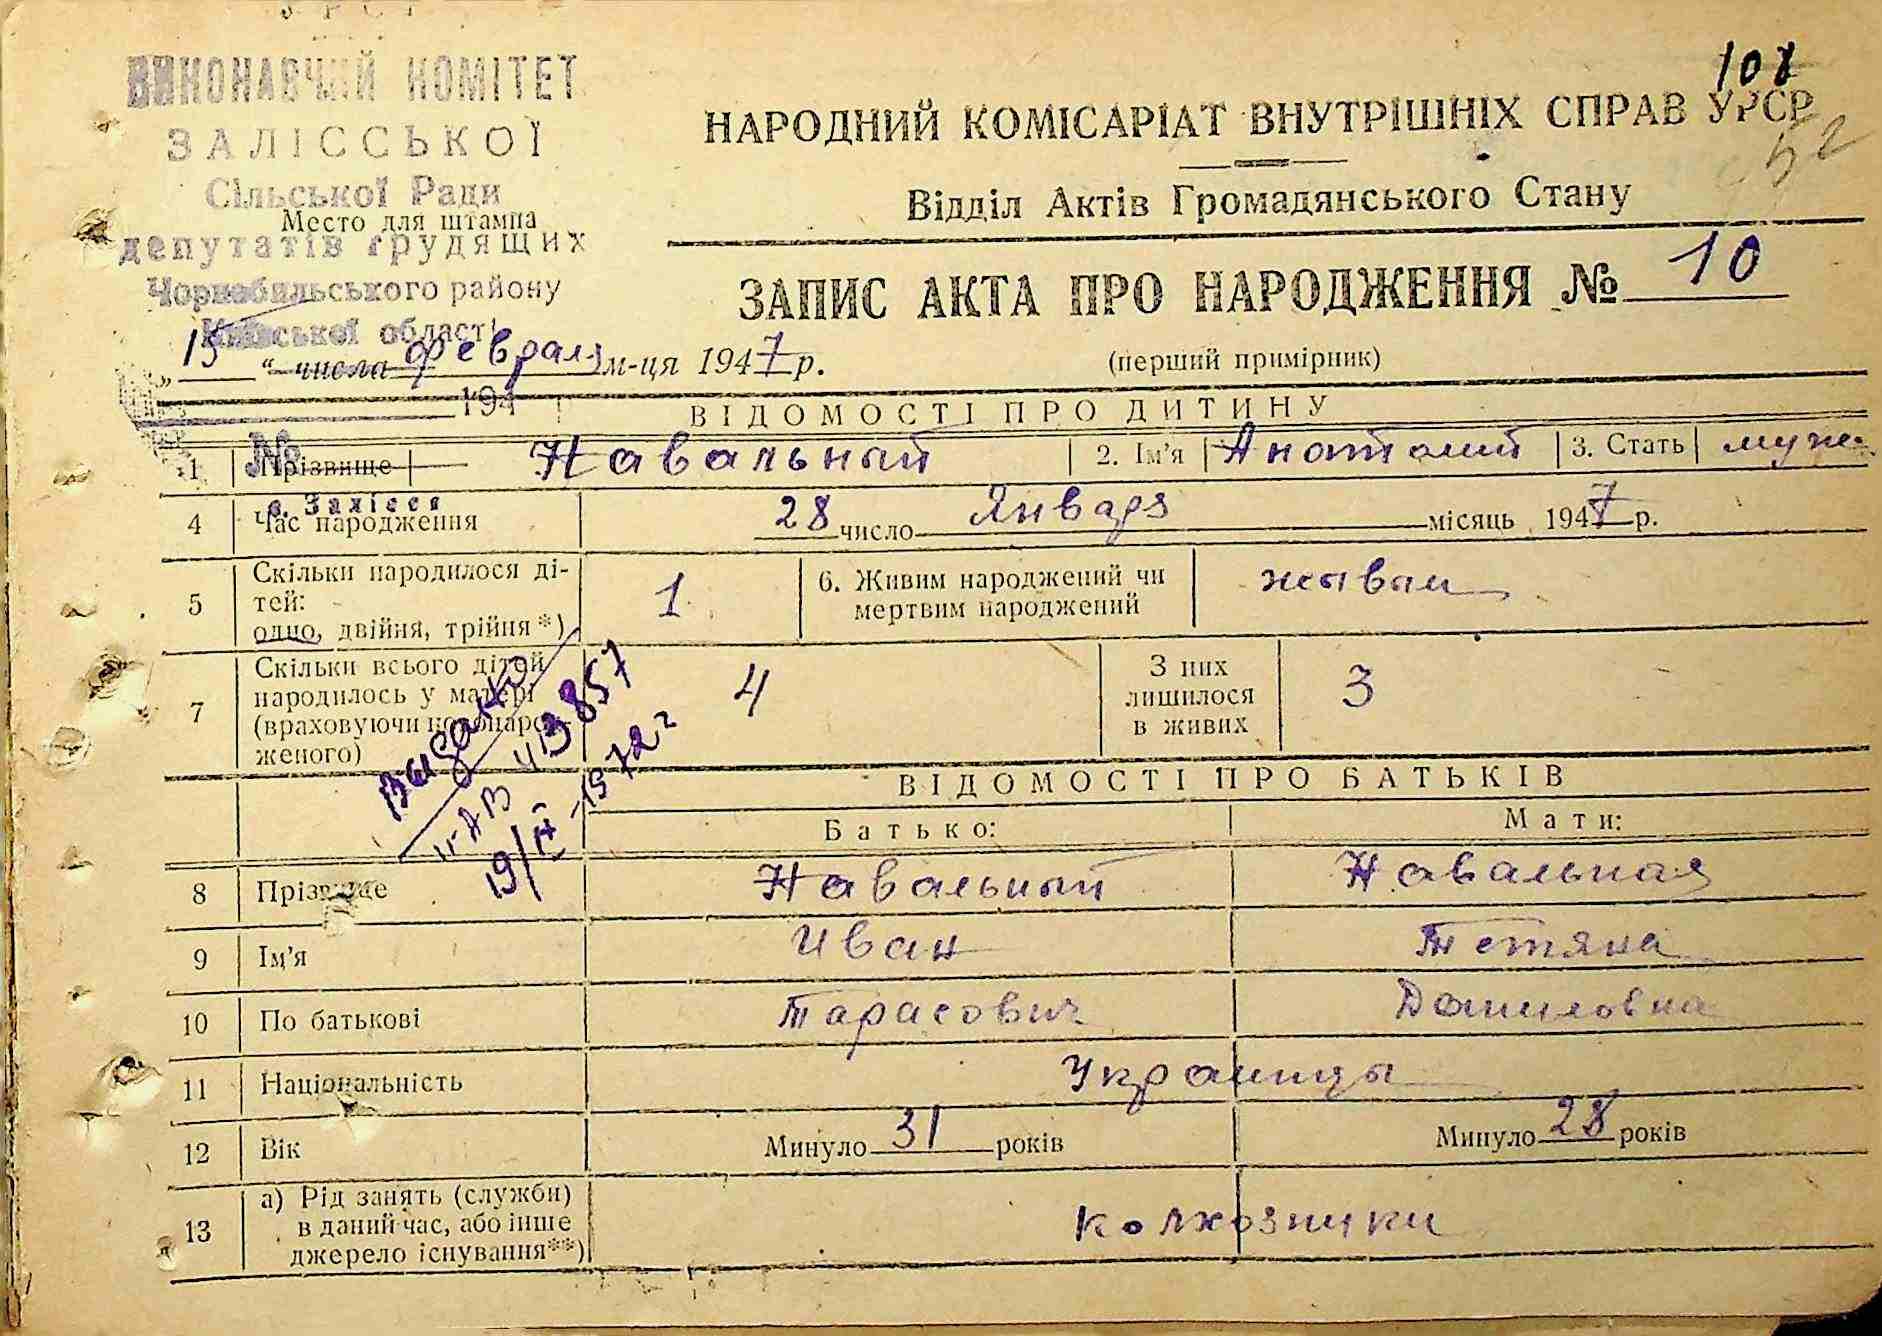 ВИКОНАВЧИЙ КОМІТЕТ
ЗАЛІССЬКОЇ
Сільської Ради
Место для штампа
депутатів трудящих
Чорнобильського району
Київської області
108
НАРОДНИЙ КОМІСАРІАТ ВНУТРІШНІХ СПРАВ УРСР
52
Відділ Актів Громадянського Стану
ЗАПИС АКТА ПРО НАРОДЖЕННЯ № 10
„ 15 “ числа февраля м-ця 1947 р.
(перший примірник)
194
ВІДОМОСТІ ПРО ДИТИНУ
№
1 Прізвище Навальный 2. Ім'я Анатолий 3. Стать муж.
с. Залісся
4 Час народження 28 число Января місяць 1947 р.
5 Скільки народилося ді-
тей:
одно, двійня, трійня*) 1
6. Живим народжений чи
мертвим народжений живым
7 Скільки всього дітей
народилось у матері
(враховуючи новонарод-
женого) 4
З них
лишилося
в живих 3
Выдано
II-АВ 413857
19/IX-1972 г
ВІДОМОСТІ ПРО БАТЬКІВ
Батько: Мати:
8 Прізвище Навальный Навальная
9 Ім'я Иван Тетяна
10 По батькові Тарасович Даниловна
11 Національність Украинцы
12 Вік Минуло 31 років Минуло 28 років
13 а) Рід занять (служби)
в даний час, або інше
джерело існування**) колхозники